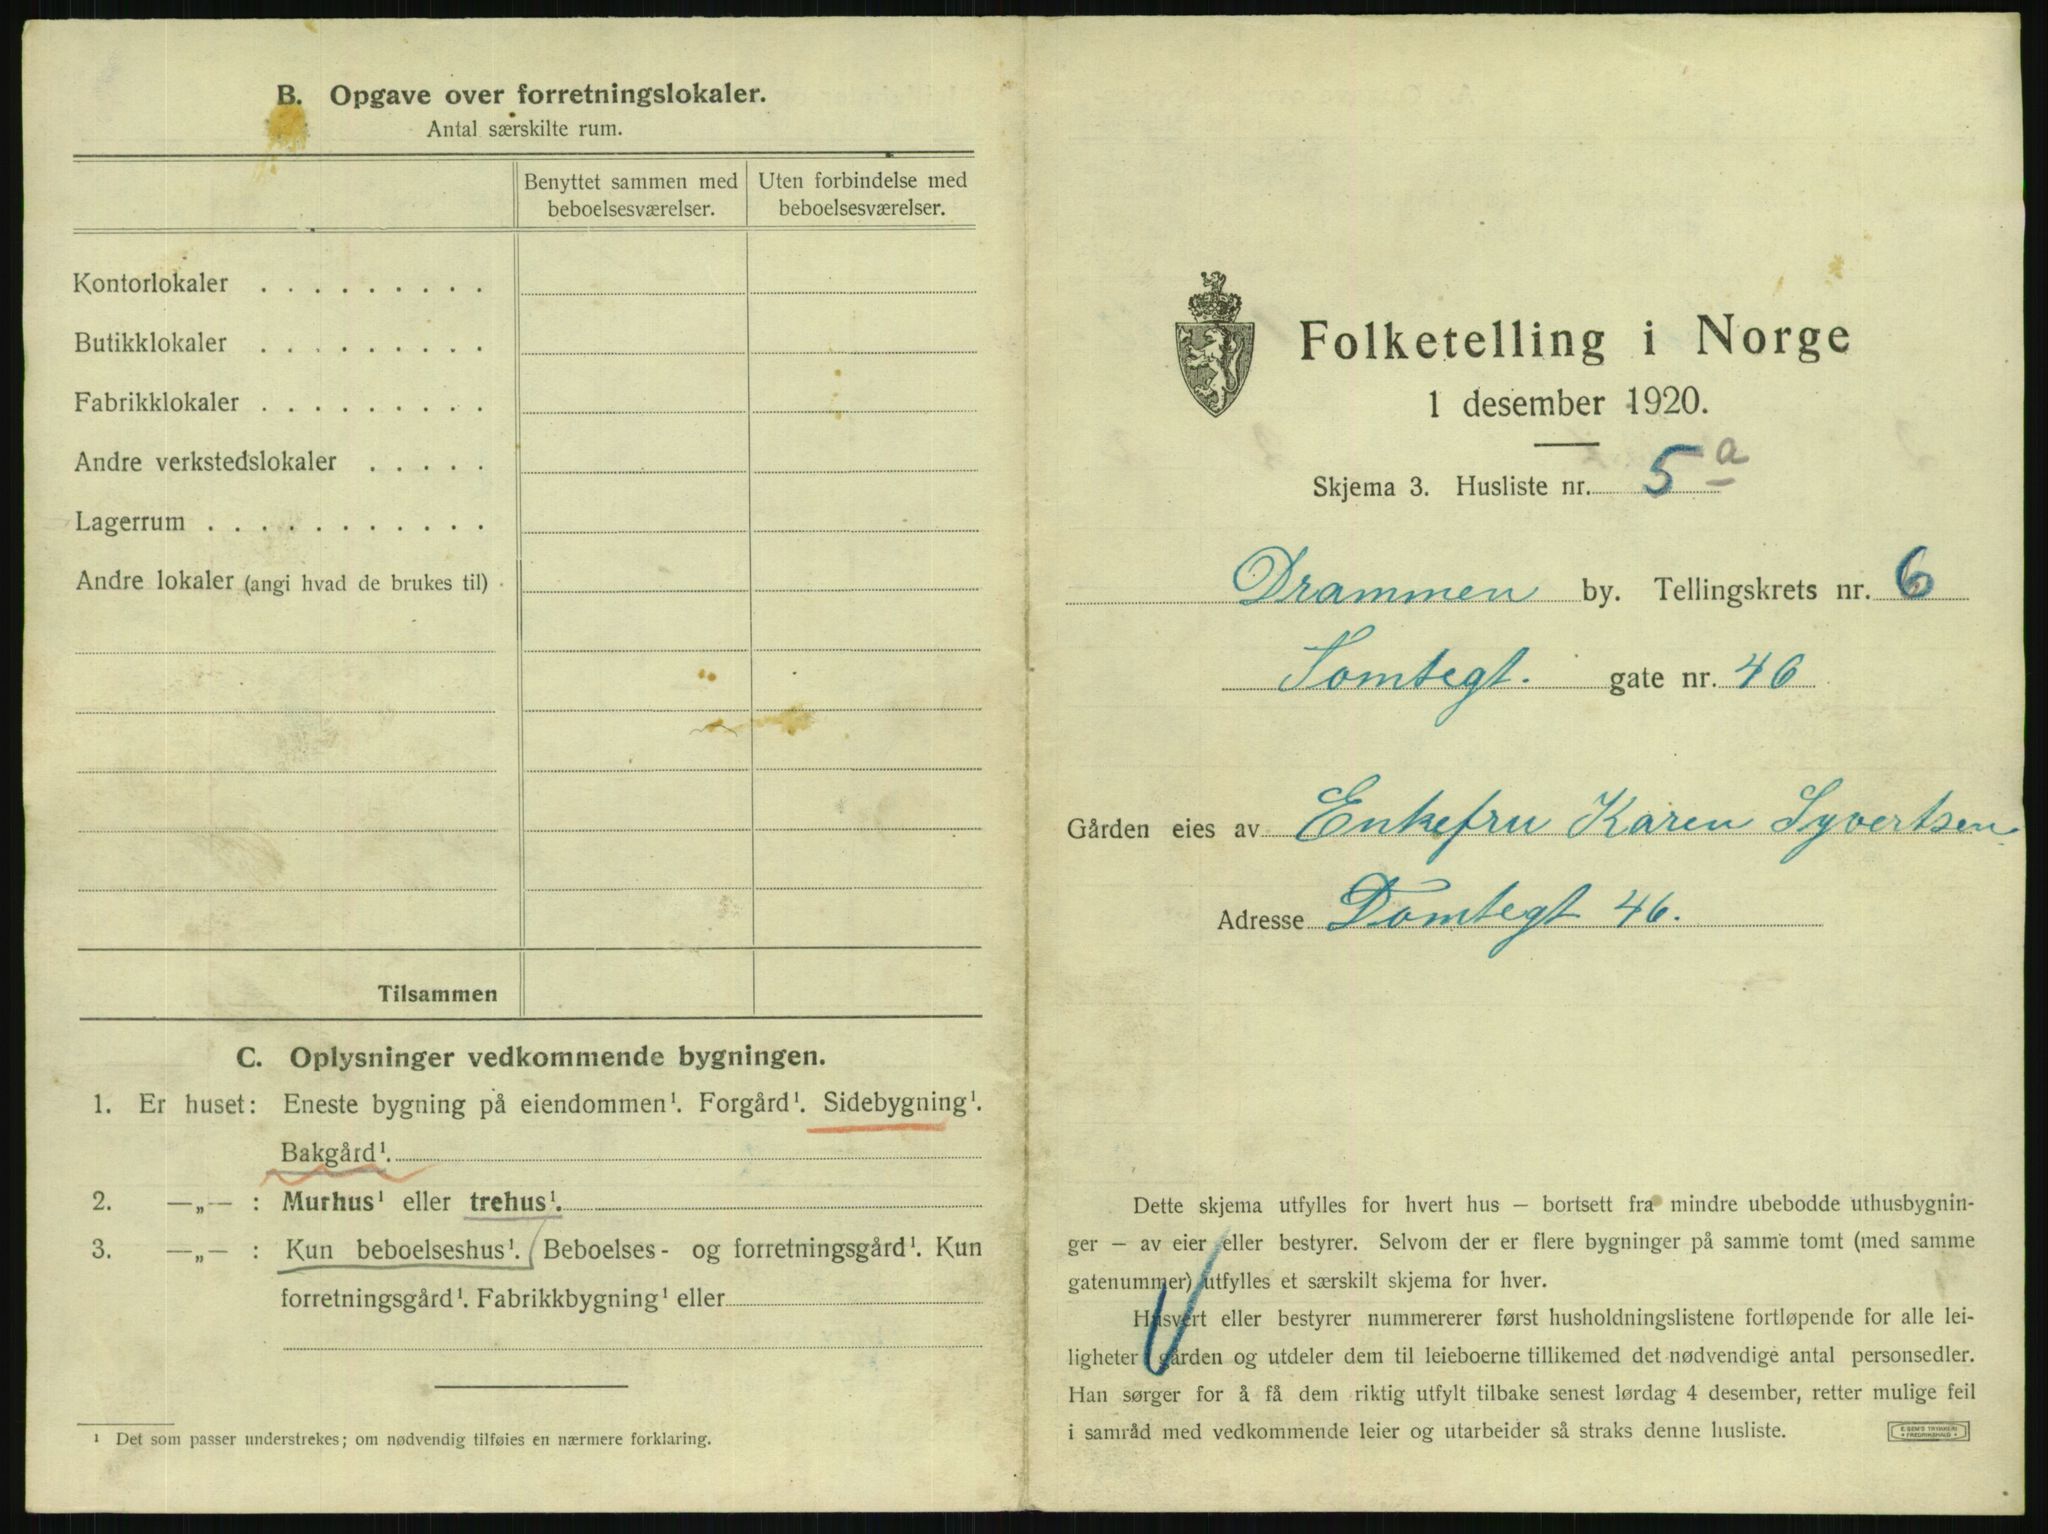 B. Opgave over forretningslokaler.
Antal særskilte rum.
Benyttet sammen med beboelsesværelser.
Uten forbindelse med beboelsesværelser.
Kontorlokaler . . . . . . . . .
Butikklokaler . . . . . . . . .
Fabrikklokaler . . . . . . . . .
Andre verkstedslokaler . . . . .
Lagerrum . . . . . . . . . . .
Andre lokaler (angi hvad de brukes til)
Tilsammen
C. Oplysninger vedkommende bygningen.
1. Er huset: Eneste bygning på eiendommen¹. Forgård¹. Sidebygning¹.
Bakgård¹.
2. —„— : Murhus¹ eller trehus¹.
3. —„— : Kun beboelseshus¹. Beboelses- og forretningsgård¹. Kun
forretningsgård¹. Fabrikkbygning¹ eller
¹ Det som passer understrekes; om nødvendig tilføies en nærmere forklaring.
Folketelling i Norge
1 desember 1920.
Skjema 3. Husliste nr. 5 a
Drammen by. Tellingskrets nr. 6
Tomtegt. gate nr. 46
Gården eies av Enkefru Karen Syvertsen
Adresse Tomtegt 46.
Dette skjema utfylles for hvert hus — bortsett fra mindre ubebodde uthusbygnin-
ger — av eier eller bestyrer. Selvom der er flere bygninger på samme tomt (med samme
gatenummer) utfylles et særskilt skjema for hver.
Husvert eller bestyrer nummererer først husholdningslistene fortløpende for alle lei-
ligheter i gården og utdeler dem til leieboerne tillikemed det nødvendige antal personsedler.
Han sørger for å få dem riktig utfylt tilbake senest lørdag 4 desember, retter mulige feil
i samråd med vedkommende leier og utarbeider så straks denne husliste.
E. SEM'S TRYKKERI
FREDRIKSHALD